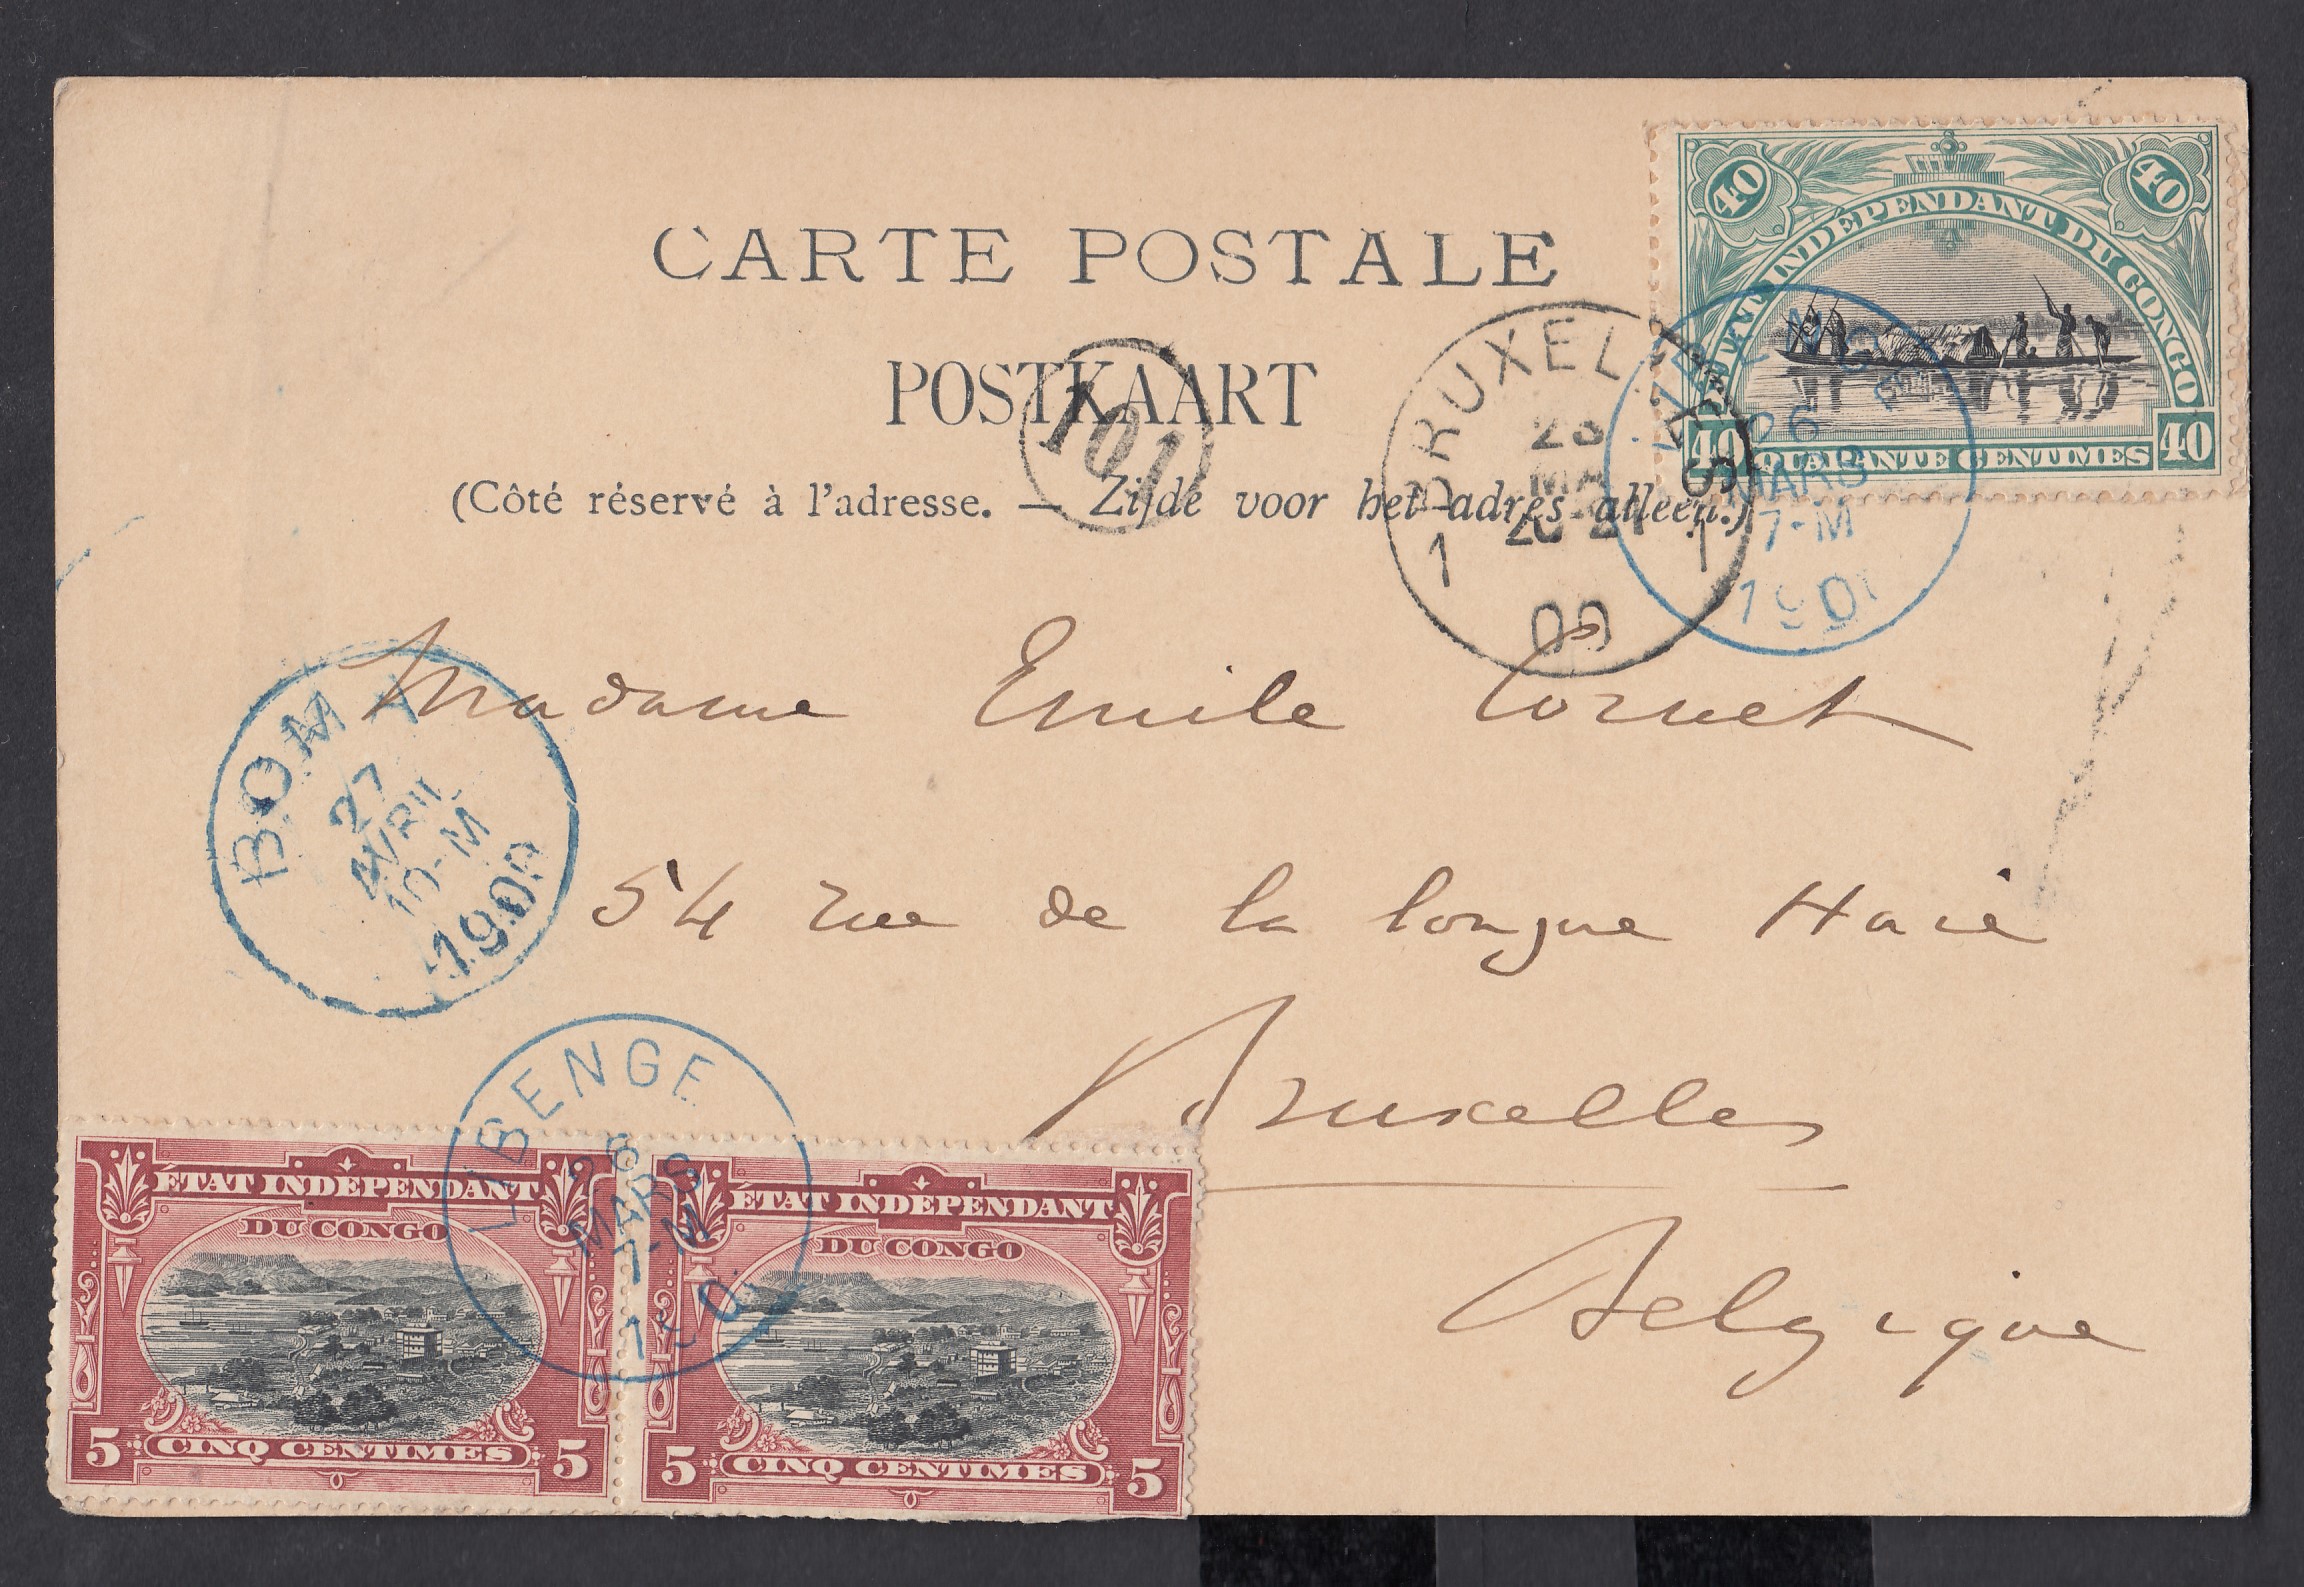 CARTE POSTALE
POSTKAART
(Côté réservé à l'adresse. — Zijde voor het adres alleen.)
101
BRUXELLES
1 1
00
40 40
ÉTAT INDÉPENDANT DU CONGO
40 QUARANTE CENTIMES 40
26
MARS
7-M
Madame Emile Cornet
54 rue de la longue Haie
Bruxelles
Belgique
BOMA
27
AVRIL
10-M
1900
LIBENGE
26
MARS
7-M
ÉTAT INDÉPENDANT
DU CONGO
5 CINQ CENTIMES 5
ÉTAT INDÉPENDANT
DU CONGO
5 CINQ CENTIMES 5